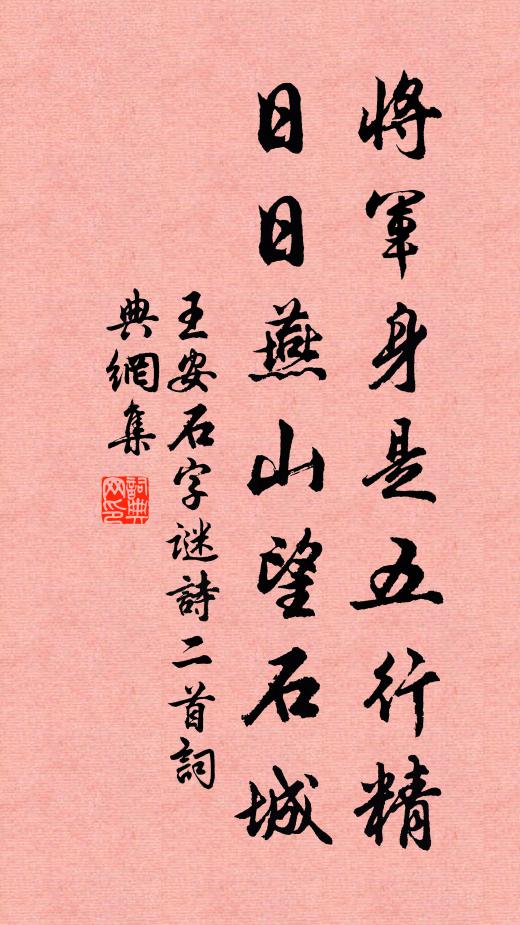 將軍身是五行精
日日燕山望石城
王安石字謎詩二首詞
典網集
詞典網印